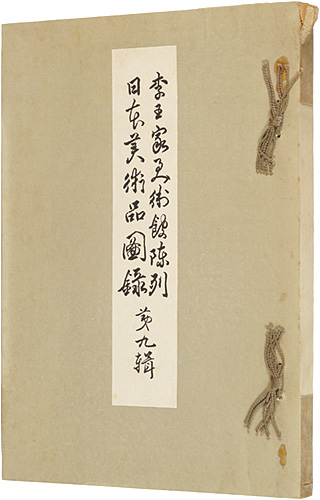 李王家美術館陳列
日本美術品圖錄 第九輯